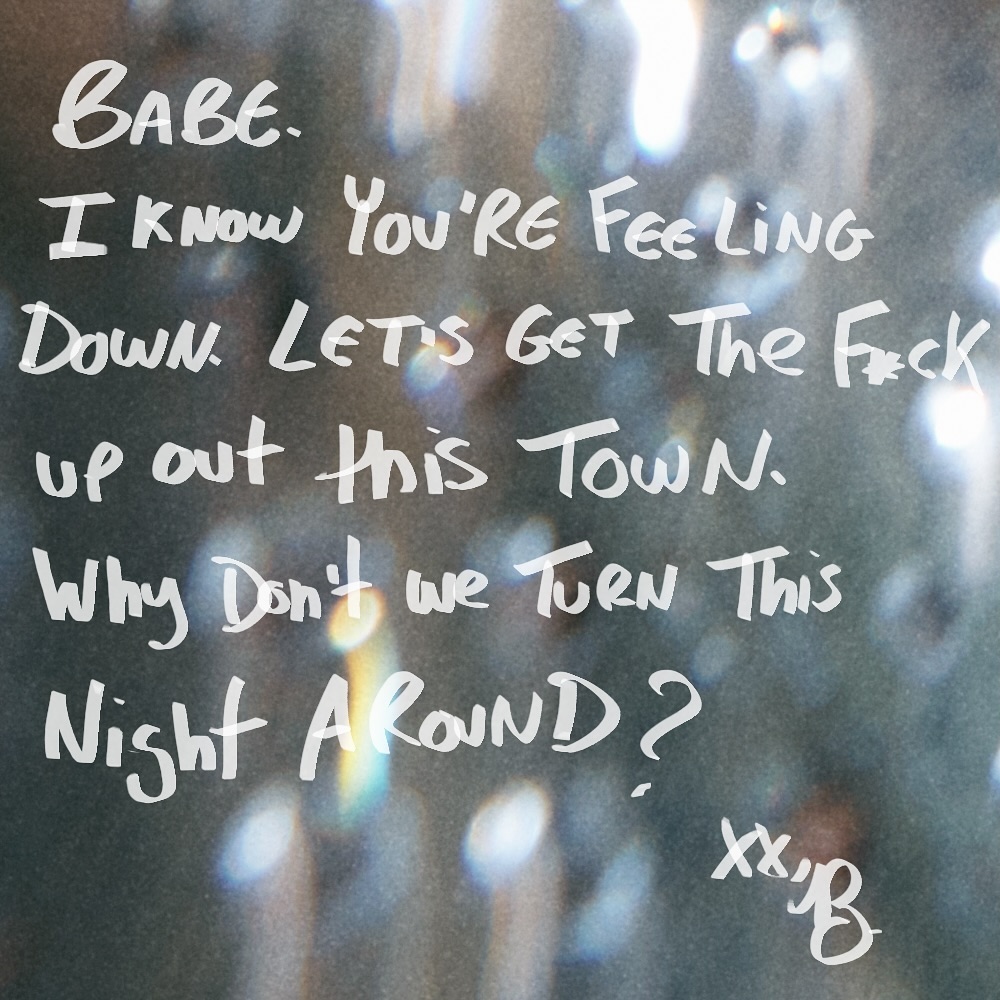 BABE.
I KNOW YOU'RE FEELiNG
DOWN. LET'S GET The F*cK
up out this TOWN.
Why Don't we TURN This
Night AROUND?
xx, B